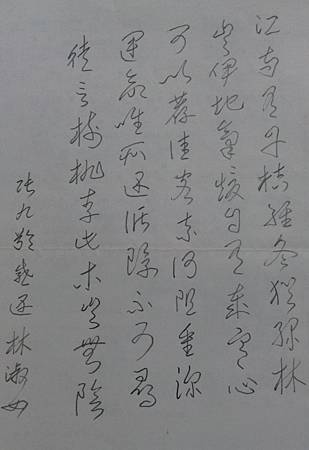 江南有丹橘經冬猶綠林
豈伊地氣暖自有歲寒心
可以薦佳客奈何阻重深
運命唯所遇循環不可尋
徒言樹桃李此木豈無陰
張九齡感遇 林淑女